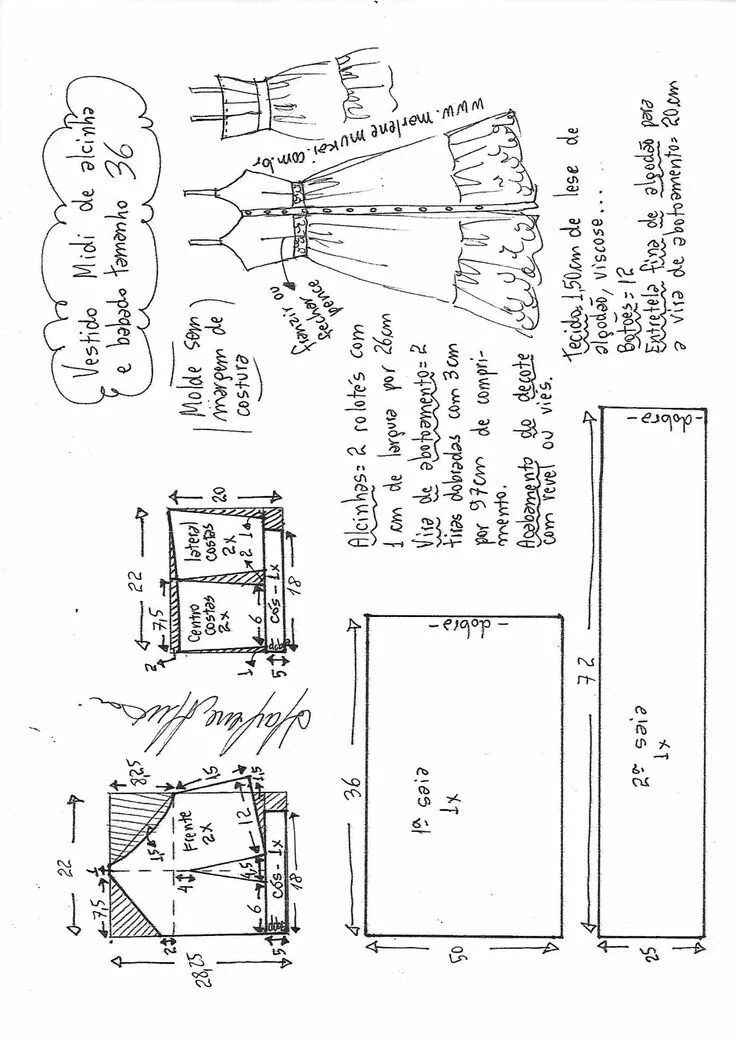 Vestido Midi de alcinha
e babado tamanho 36
www.marlenemukai.com.br
franzir ou
fechar
pence
Molde sem
margem de
costura
Tecido 1,50cm de lese de
algodão, viscose...
Botões = 12
Entretela fina de algodão para
a vira de abotoamento = 20cm
Alcinhas = 2 rolotés com
1 cm de largura por 26cm
Vira de abotoamento = 2
tiras dobradas com 3cm
por 97cm de compri-
mento.
Acabamento do decote
com revel ou viés.
22
7,5
2
20
Centro
costas
2x
lateral
costas
2x
6
2
1
1
cós - 1x
5
18
22
7,5
1
8,25
1,5
15
Frente
2x
28,25
2
4
12
1,5
6
4,5
cós - 1x
5
18
36
1ª seia
1x
- dobra -
50
72
2ª seia
1x
- dobra -
25